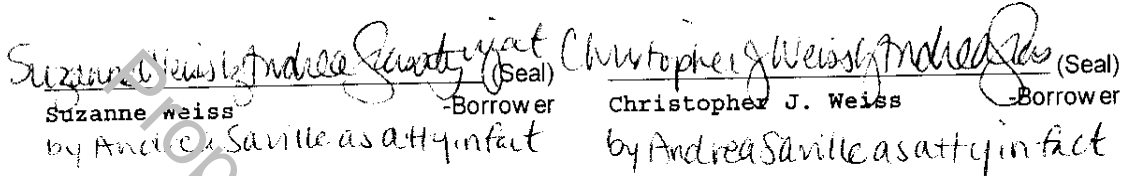 Suzanne Weiss by Andrea Saville atty in fact (Seal)
Suzanne Weiss -Borrower
by Andrea Saville as atty in fact
Christopher J Weiss by Andrea (Seal)
Christopher J. Weiss -Borrower
by Andrea Saville as atty in fact